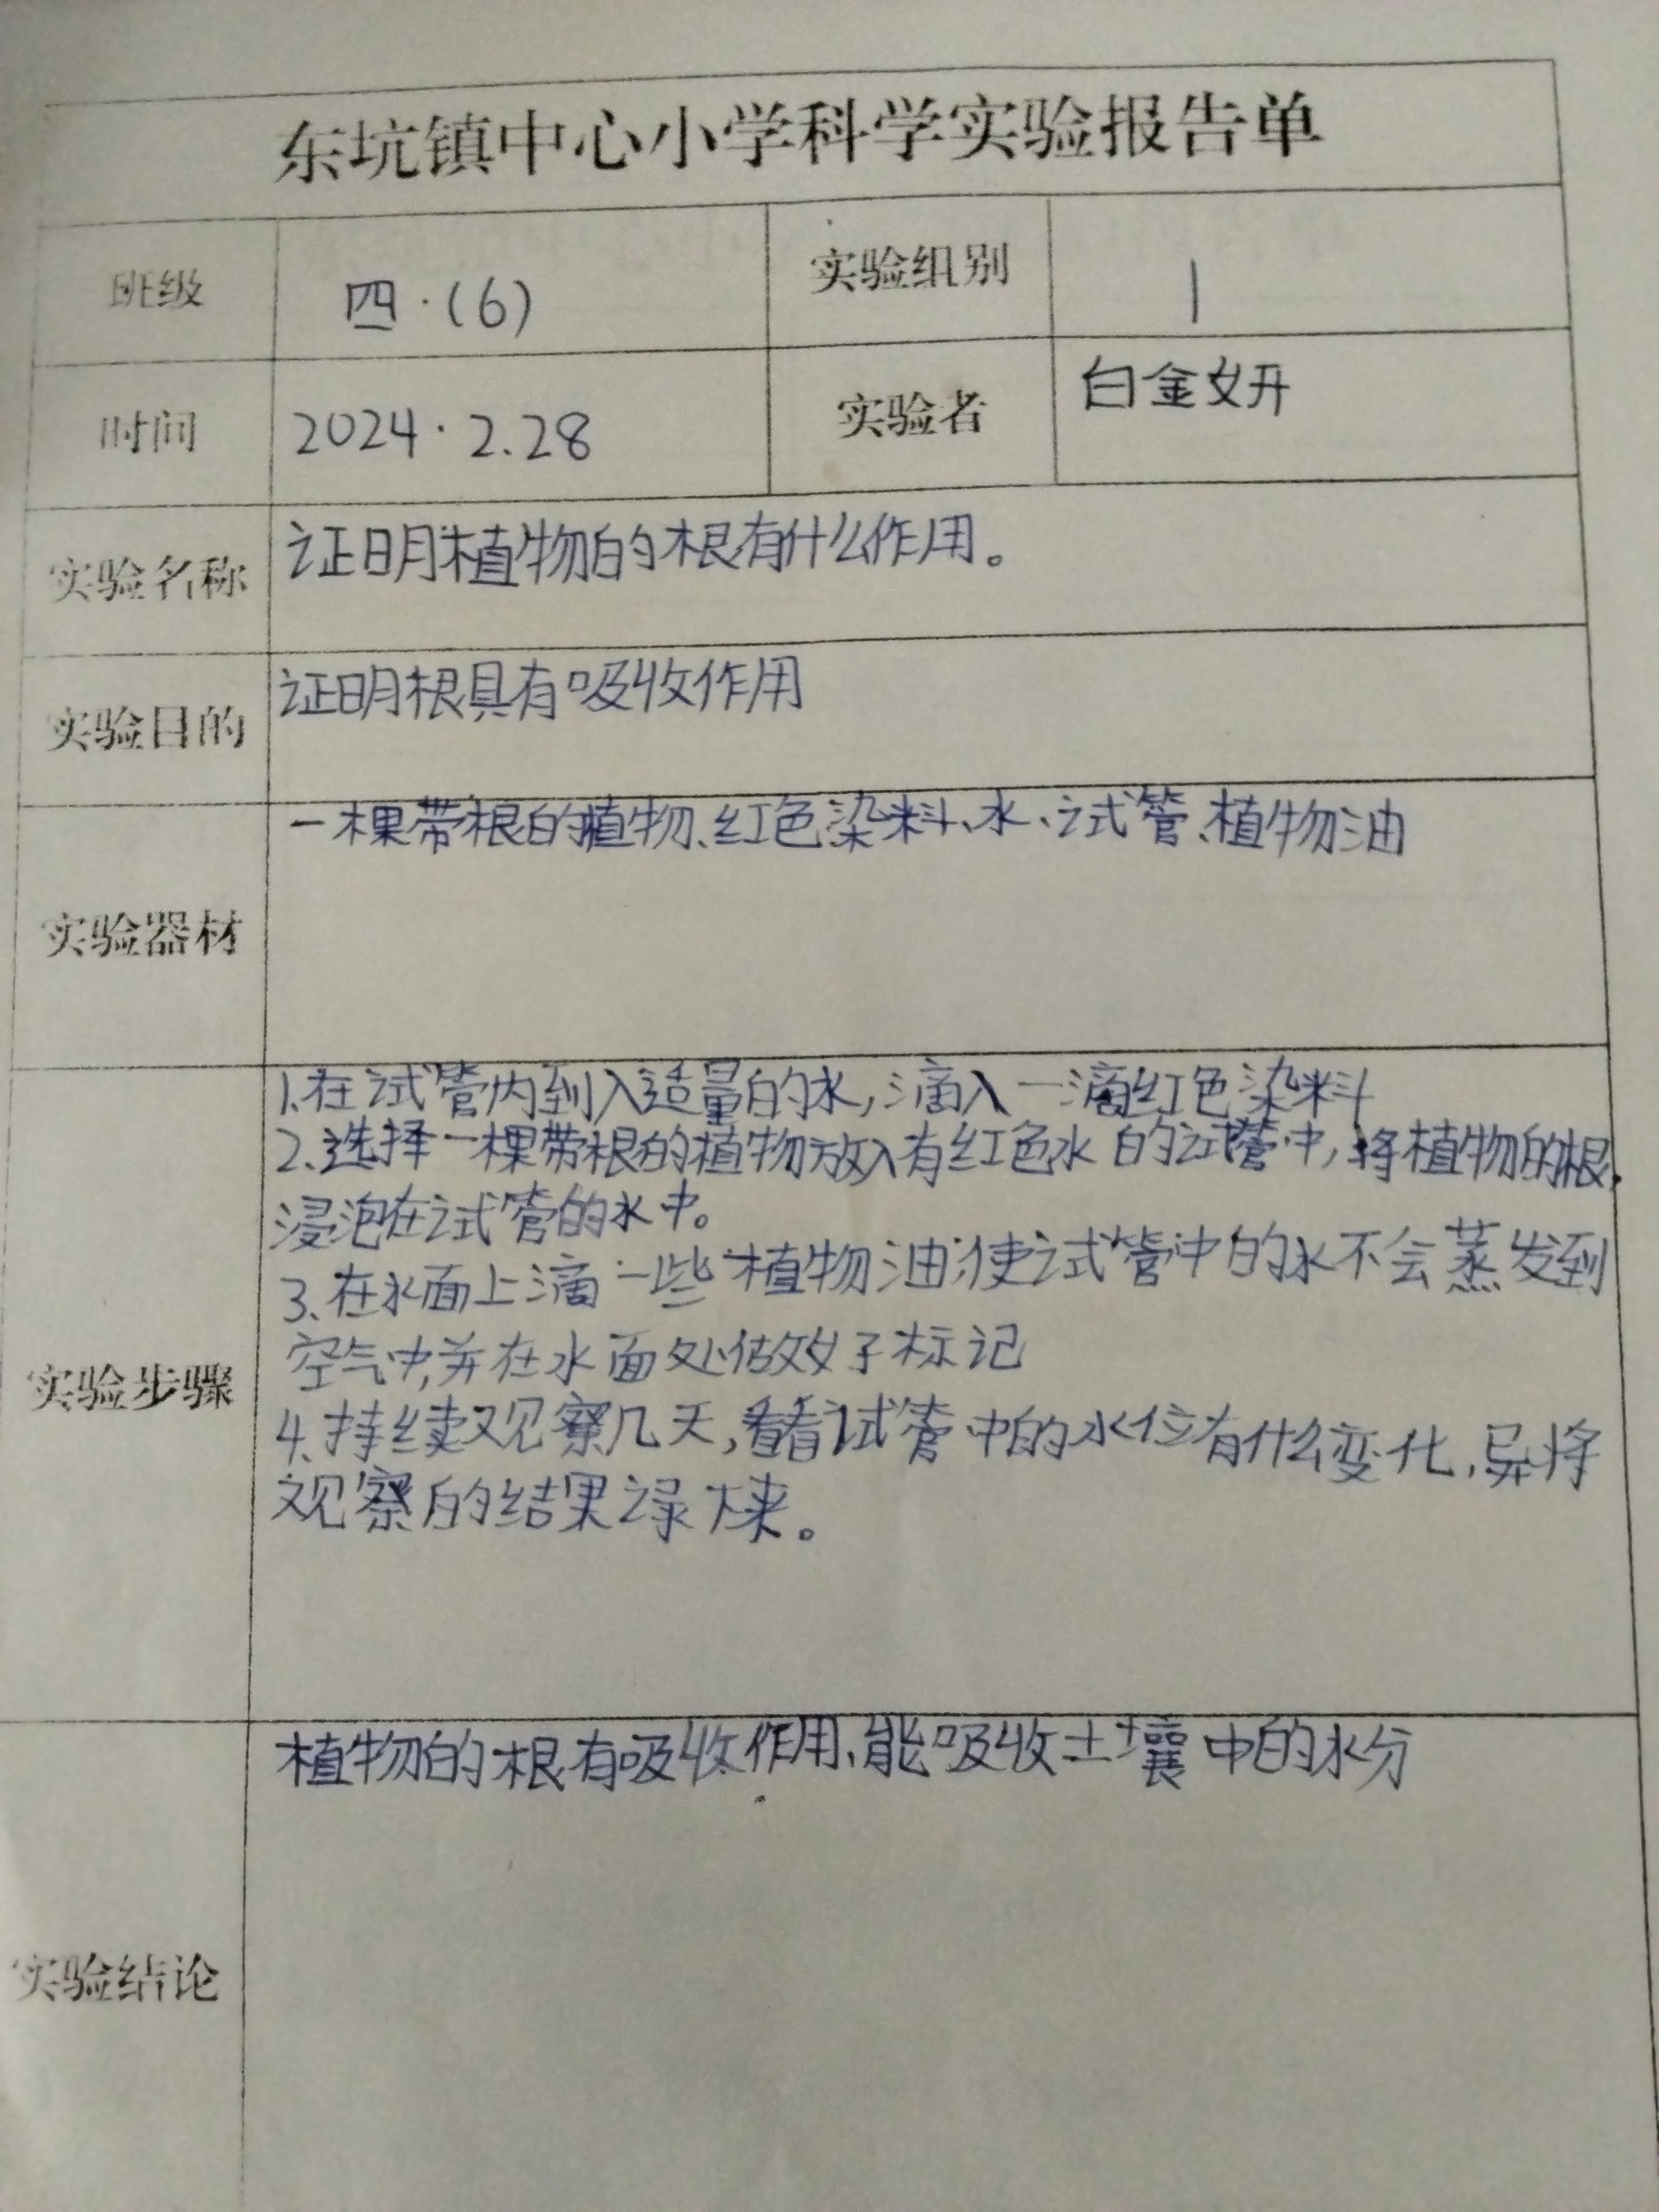 东坑镇中心小学科学实验报告单
班级 四·(6) 实验组别 1
时间 2024·2.28 实验者 白金妍
实验名称 证明植物的根有什么作用。
实验目的 证明根具有吸收作用
实验器材 一棵带根的植物、红色染料、水、试管、植物油
实验步骤
1.在试管内到入适量的水,滴入一滴红色染料
2.选择一棵带根的植物放入有红色水的试管中,将植物的根,
浸泡在试管的水中。
3.在水面上滴一些植物油,使试管中的水不会蒸发到
空气中,并在水面处做好标记
4.持续观察几天,看看试管中的水位有什么变化,异将
观察的结果录下来。
实验结论
植物的根有吸收作用,能吸收土壤中的水分